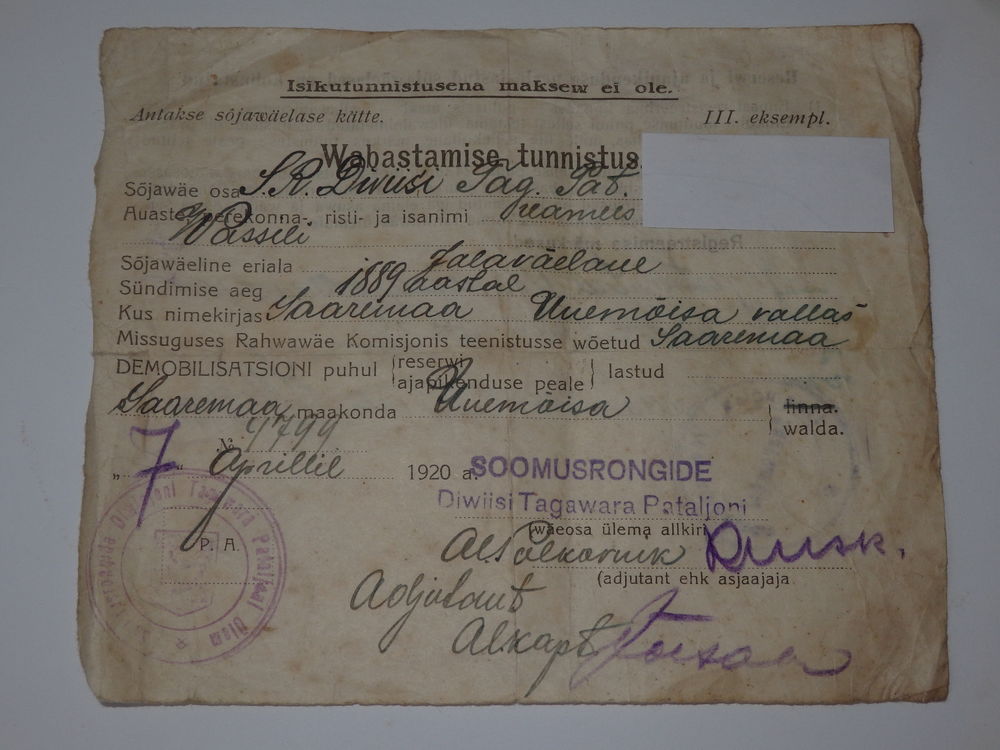 Isikutunnistusena maksew ei ole.
Antakse sõjawäelase kätte. III. eksempl.
Wabastamise tunnistus
Sõjawäe osa S. R. Diviisi Tag. Pat.
Auaste, perekonna-, risti- ja isanimi reamees
Wassili
Sõjawäeline eriala Jalaväelane
Sündimise aeg 1889 aastal
Kus nimekirjas Saaremaa Uuemõisa vallas
Missuguses Rahwawäe Komisjonis teenistusse wõetud Saaremaa
DEMOBILISATSIONI puhul (reserwi ajapikenduse peale) lastud
Saaremaa maakonda Uuemõisa linna. walda.
№ 9799
„7“ Aprillil 1920 a.
SOOMUSRONGIDE
Diwiisi Tagawara Pataljoni
(wäeosa ülema allkiri
P. A.
Al. Polkovnik
(adjutant ehk asjaajaja
Adjutant
Al. kapt.